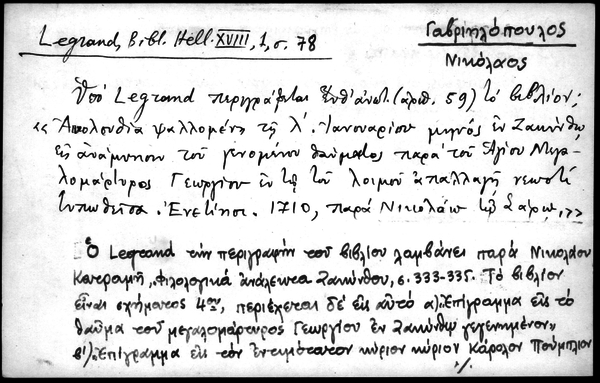 Legrand, Bibl. Hell. XVIII, 1, σ. 78
Γαβριηλόπουλος
Νικόλαος
Ὑπὸ Legrand περιγράφεται ἔνθ' ἀνωτ. (ἀριθ. 59) τὸ βιβλίον;
«Ἀκολουθία ψαλλομένη τῇ λ'. Ἰανουαρίου μηνὸς ἐν Ζακύνθῳ
εἰς ἀνάμνησιν τοῦ γενομένου θαύματος παρὰ τοῦ Ἁγίου Μεγα-
λομάρτυρος Γεωργίου ἐν τῇ τοῦ λοιμοῦ ἀπαλλαγῇ νεωστὶ
τυπωθεῖσα. Ἐνετίησι. 1710, παρὰ Νικολάῳ τῷ Σάρῳ,»
Ὁ Legrand τὴν περιγραφὴν τοῦ βιβλίου λαμβάνει παρὰ Νικολάου
Κατραμῆ, Φιλολογικὰ ἀνάλεκτα Ζακύνθου, σ. 333-335. Τὸ βιβλίον
εἶναι σχήματος 4ου, περιέχεται δὲ εἰς αὐτὸ α) «Ἐπίγραμμα εἰς τὸ
θαῦμα τοῦ μεγαλομάρτυρος Γεωργίου ἐν Ζακύνθῳ γεγενημένον»
β') «Ἐπίγραμμα εἰς τὸν ἐντιμότατον κύριον κύριον Κάρολον Πούμπλιον
./.